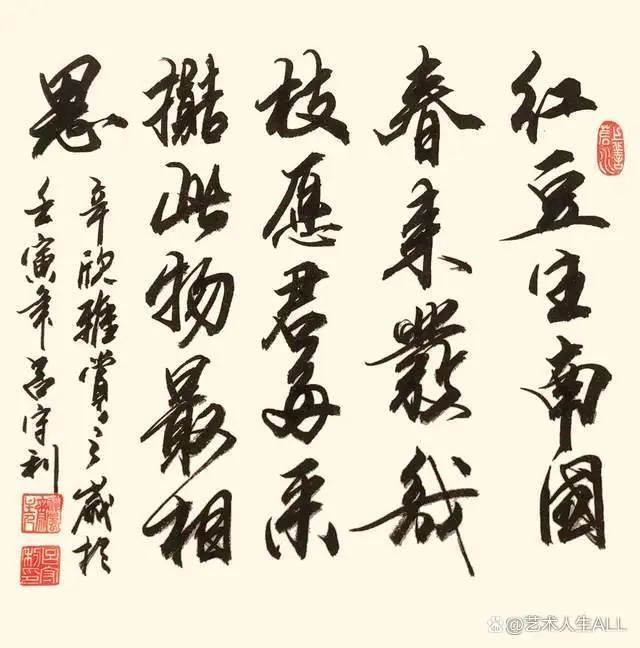 红豆生南國
春来發幾
枝愿君多采
擷此物最相
思
辛欣雅賞之歲於
壬寅年吕守利
上善若水
吕守利印
@艺术人生ALL